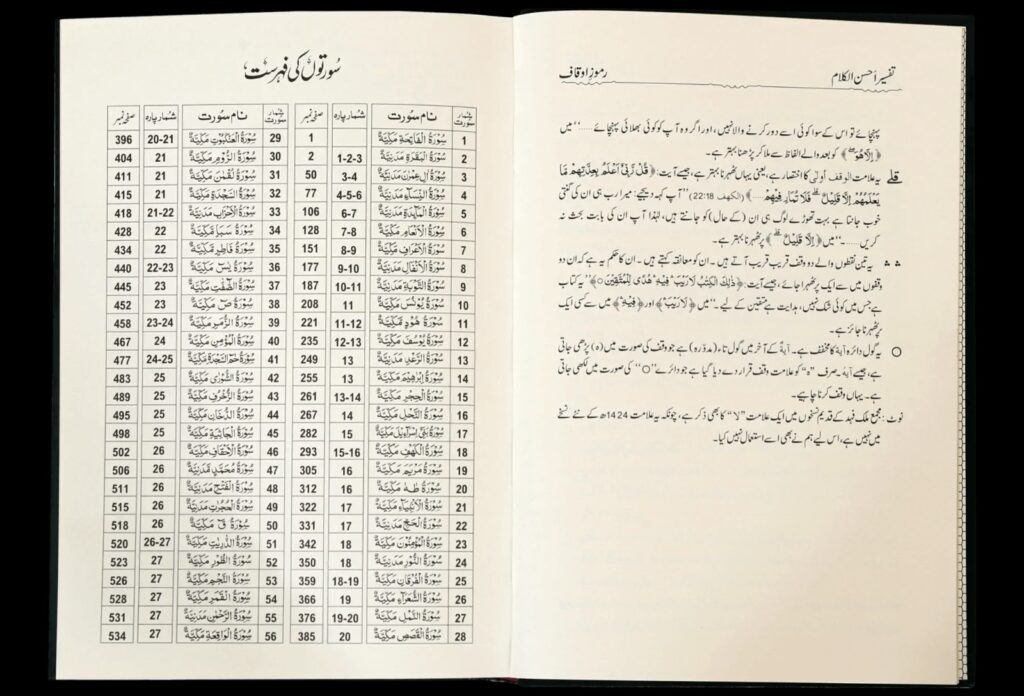 تفسیر أحسن الکلام رموزِ اوقاف
پہنچائے تو اس کے سوا کوئی اسے دور کرنے والا نہیں، اور اگر وہ آپ کو کوئی بھلائی پہنچائے......‘‘ میں
﴿اِلَّا هُوَ ۚ﴾ کو بعد والے الفاظ سے ملا کر پڑھنا بہتر ہے۔
قلے یہ علامت الوقف أولیٰ کا اختصار ہے، یعنی یہاں ٹھہرنا بہتر ہے، جیسے آیت: ﴿قُلْ رَّبِّیْۤ اَعْلَمُ بِعِدَّتِهِمْ مَّا
یَعْلَمُهُمْ اِلَّا قَلِیْلٌ ۗ فَلَا تُمَارِ فِیْهِمْ......﴾ (الکهف 22:18) ’’آپ کہہ دیجیے: میرا رب ہی ان کی گنتی
خوب جانتا ہے بہت تھوڑے لوگ ہی ان (کے حال) کو جانتے ہیں، لہٰذا آپ ان کی بابت بحث نہ
کریں......۔‘‘ میں ﴿اِلَّا قَلِیْلٌ ۗ﴾ پر ٹھہرنا بہتر ہے۔
ۛ ۛ یہ تین نقطوں والے دو وقف قریب قریب آتے ہیں۔ ان کو معانقہ کہتے ہیں۔ ان کا حکم یہ ہے کہ ان دو
وقفوں میں سے ایک پر ٹھہرا جائے، جیسے آیت: ﴿ذٰلِكَ الْكِتٰبُ لَا رَیْبَ ۛ فِیْهِ ۛ هُدًی لِّلْمُتَّقِیْنَ ○﴾ ’’یہ کتاب
ہے جس میں کوئی شک نہیں، ہدایت ہے متقین کے لیے۔‘‘ میں ﴿لَا رَیْبَ ۛ﴾ اور ﴿فِیْهِ ۛ﴾ میں سے کسی ایک
پر ٹھہرنا جائز ہے۔
○ یہ گول دائرہ آیۃ کا مخفف ہے۔ آیۃٌ کے آخر میں گول تاء (مدوّرہ) ہے جو وقف کی صورت میں (ہ) پڑھی جاتی
ہے، جیسے آیہْ۔ صرف ’’ہ‘‘ کو علامت وقف قرار دے دیا گیا ہے جو دائرے ’’○‘‘ کی صورت میں لکھی جاتی
ہے۔ یہاں وقف کرنا چاہیے۔
نوٹ: مجمع ملک فہد کے قدیم نسخوں میں ایک علامت ’’لا‘‘ کا بھی ذکر ہے، چونکہ یہ علامت 1424ھ کے نئے نسخے
میں نہیں ہے، اس لیے ہم نے بھی اسے استعمال نہیں کیا۔
سُورتوں کی فہرست
شمار سورت نام سورت شمار پارہ صفحہ نمبر شمار سورت نام سورت شمار پارہ صفحہ نمبر
1 سُوْرَةُ الْفَاتِحَةِ مَكِّيَّةٌ 1 29 سُوْرَةُ الْعَنْكَبُوْتِ مَكِّيَّةٌ 20-21 396
2 سُوْرَةُ الْبَقَرَةِ مَدَنِيَّةٌ 1-2-3 2 30 سُوْرَةُ الرُّوْمِ مَكِّيَّةٌ 21 404
3 سُوْرَةُ اٰلِ عِمْرٰنَ مَدَنِيَّةٌ 3-4 50 31 سُوْرَةُ لُقْمٰنَ مَكِّيَّةٌ 21 411
4 سُوْرَةُ النِّسَآءِ مَدَنِيَّةٌ 4-5-6 77 32 سُوْرَةُ السَّجْدَةِ مَكِّيَّةٌ 21 415
5 سُوْرَةُ الْمَآئِدَةِ مَدَنِيَّةٌ 6-7 106 33 سُوْرَةُ الْاَحْزَابِ مَدَنِيَّةٌ 21-22 418
6 سُوْرَةُ الْاَنْعَامِ مَكِّيَّةٌ 7-8 128 34 سُوْرَةُ سَبَاٍ مَكِّيَّةٌ 22 428
7 سُوْرَةُ الْاَعْرَافِ مَكِّيَّةٌ 8-9 151 35 سُوْرَةُ فَاطِرٍ مَكِّيَّةٌ 22 434
8 سُوْرَةُ الْاَنْفَالِ مَدَنِيَّةٌ 9-10 177 36 سُوْرَةُ يٰسٓ مَكِّيَّةٌ 22-23 440
9 سُوْرَةُ التَّوْبَةِ مَدَنِيَّةٌ 10-11 187 37 سُوْرَةُ الصّٰٓفّٰتِ مَكِّيَّةٌ 23 445
10 سُوْرَةُ يُوْنُسَ مَكِّيَّةٌ 11 208 38 سُوْرَةُ صٓ مَكِّيَّةٌ 23 452
11 سُوْرَةُ هُوْدٍ مَكِّيَّةٌ 11-12 221 39 سُوْرَةُ الزُّمَرِ مَكِّيَّةٌ 23-24 458
12 سُوْرَةُ يُوْسُفَ مَكِّيَّةٌ 12-13 235 40 سُوْرَةُ الْمُؤْمِنِ مَكِّيَّةٌ 24 467
13 سُوْرَةُ الرَّعْدِ مَدَنِيَّةٌ 13 249 41 سُوْرَةُ حٰمٓ السَّجْدَةِ مَكِّيَّةٌ 24-25 477
14 سُوْرَةُ اِبْرٰهِيْمَ مَكِّيَّةٌ 13 255 42 سُوْرَةُ الشُّوْرٰى مَكِّيَّةٌ 25 483
15 سُوْرَةُ الْحِجْرِ مَكِّيَّةٌ 13-14 261 43 سُوْرَةُ الزُّخْرُفِ مَكِّيَّةٌ 25 489
16 سُوْرَةُ النَّحْلِ مَكِّيَّةٌ 14 267 44 سُوْرَةُ الدُّخَانِ مَكِّيَّةٌ 25 495
17 سُوْرَةُ بَنِيْٓ اِسْرَآءِيْلَ مَكِّيَّةٌ 15 282 45 سُوْرَةُ الْجَاثِيَةِ مَكِّيَّةٌ 25 498
18 سُوْرَةُ الْكَهْفِ مَكِّيَّةٌ 15-16 293 46 سُوْرَةُ الْاَحْقَافِ مَكِّيَّةٌ 26 502
19 سُوْرَةُ مَرْيَمَ مَكِّيَّةٌ 16 305 47 سُوْرَةُ مُحَمَّدٍ مَدَنِيَّةٌ 26 506
20 سُوْرَةُ طٰهٰ مَكِّيَّةٌ 16 312 48 سُوْرَةُ الْفَتْحِ مَدَنِيَّةٌ 26 511
21 سُوْرَةُ الْاَنْبِيَآءِ مَكِّيَّةٌ 17 322 49 سُوْرَةُ الْحُجُرٰتِ مَدَنِيَّةٌ 26 515
22 سُوْرَةُ الْحَجِّ مَدَنِيَّةٌ 17 331 50 سُوْرَةُ قٓ مَكِّيَّةٌ 26 518
23 سُوْرَةُ الْمُؤْمِنُوْنَ مَكِّيَّةٌ 18 342 51 سُوْرَةُ الذّٰرِيٰتِ مَكِّيَّةٌ 26-27 520
24 سُوْرَةُ النُّوْرِ مَدَنِيَّةٌ 18 350 52 سُوْرَةُ الطُّوْرِ مَكِّيَّةٌ 27 523
25 سُوْرَةُ الْفُرْقَانِ مَكِّيَّةٌ 18-19 359 53 سُوْرَةُ النَّجْمِ مَكِّيَّةٌ 27 526
26 سُوْرَةُ الشُّعَرَآءِ مَكِّيَّةٌ 19 366 54 سُوْرَةُ الْقَمَرِ مَكِّيَّةٌ 27 528
27 سُوْرَةُ النَّمْلِ مَكِّيَّةٌ 19-20 376 55 سُوْرَةُ الرَّحْمٰنِ مَدَنِيَّةٌ 27 531
28 سُوْرَةُ الْقَصَصِ مَكِّيَّةٌ 20 385 56 سُوْرَةُ الْوَاقِعَةِ مَكِّيَّةٌ 27 534